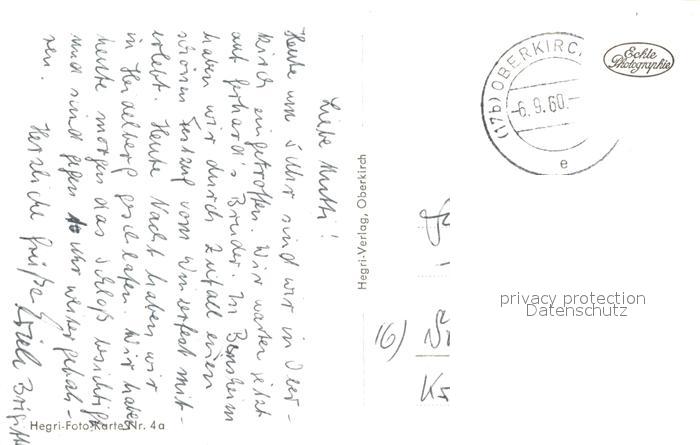 Liebe Mutti!
Heute um 5 Uhr sind wir in Ober-
kirch eingetroffen. Wir warten jetzt
auf Gerhard's Bruder. In Bensheim
haben wir durch Zufall einen
schönen Festzug vom Winzerfest mit-
erlebt. Heute Nacht haben wir
in Heidelberg geschlafen. Wir haben
heute morgen das Schloß besichtigt
und sind gegen 10 Uhr weiter gefah-
ren.
Herzliche Grüße
Brigitte
Hegri-Foto-Karte Nr. 4a
Hegri-Verlag, Oberkirch
(17b) OBERKIRC
-6.9.60.-
e
Echte
Photographie
privacy protection
Datenschutz
16)